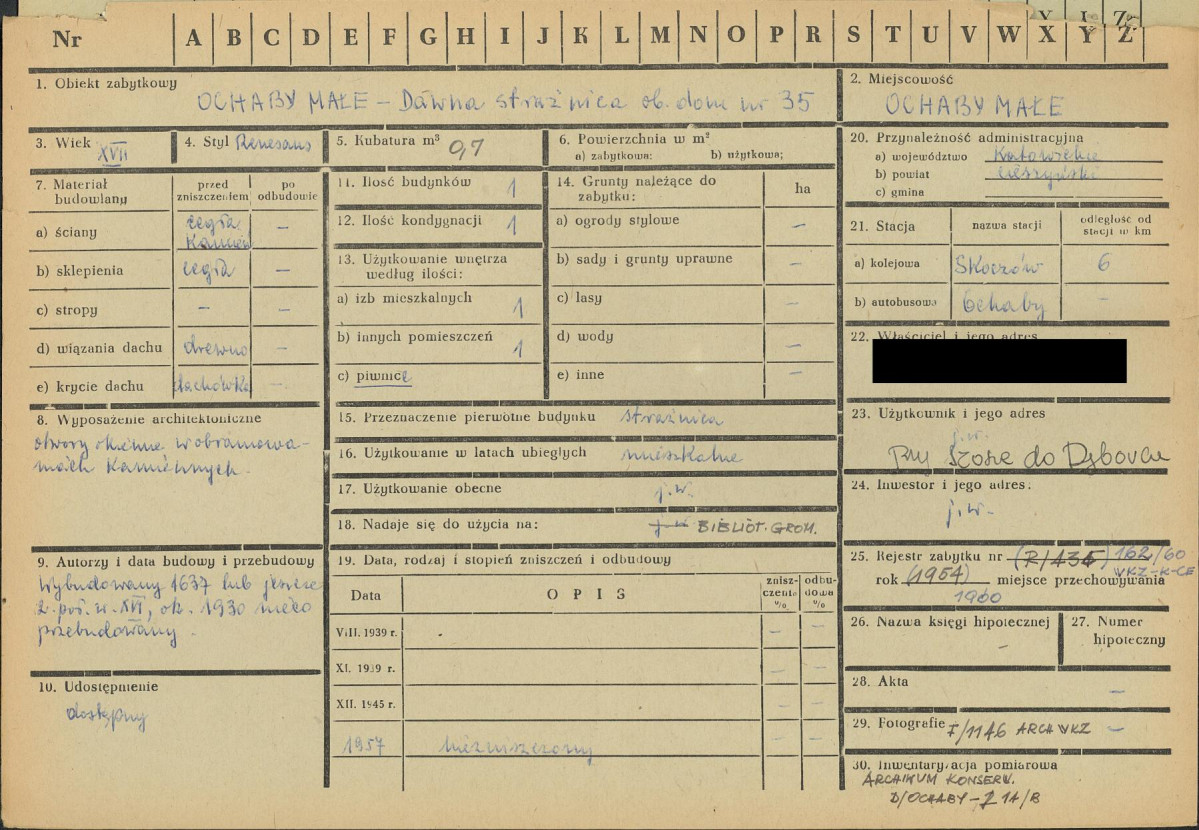 Nr A B C D E F G H I J K L M N O P R S T U V W X Y Z
1. Obiekt zabytkowy
OCHABY MAŁE – Dawna strażnica ob. dom nr 35
2. Miejscowość
OCHABY MAŁE
3. Wiek XVII
4. Styl Renesans
5. Kubatura m³ 0,7
6. Powierzchnia w m²
a) zabytkowa: b) użytkowa;
20. Przynależność administracyjna
a) województwo Katowickie
b) powiat cieszyński
c) gmina
7. Materiał budowlany
przed zniszczeniem
po odbudowie
a) ściany cegła kamień –
b) sklepienia cegła –
c) stropy – –
d) wiązania dachu drewno –
e) krycie dachu dachówka –
11. Ilość budynków 1
12. Ilość kondygnacji 1
13. Użytkowanie wnętrza według ilości:
a) izb mieszkalnych 1
b) innych pomieszczeń 1
c) piwnice
14. Grunty należące do zabytku: ha
a) ogrody stylowe –
b) sady i grunty uprawne –
c) lasy –
d) wody –
e) inne –
21. Stacja
nazwa stacji
odległość od stacji w km
a) kolejowa Skoczów 6
b) autobusowa Ochaby –
22. Właściciel i jego adres
8. Wyposażenie architektoniczne
otwory okienne w obramowa-
niach kamiennych.
15. Przeznaczenie pierwotne budynku strażnica
16. Użytkowanie w latach ubiegłych mieszkalne
17. Użytkowanie obecne j.w.
18. Nadaje się do użycia na: j.w. BIBLIOT. GROM.
23. Użytkownik i jego adres
j.w.
Przy szosie do Dębowca
24. Inwestor i jego adres:
j.w.
9. Autorzy i data budowy i przebudowy
Wybudowany 1637 lub jeszcze
2. poł. w. XVI, ok. 1930 nieco
przebudowany.
10. Udostępnienie
dostępny
19. Data, rodzaj i stopień zniszczeń i odbudowy
Data OPIS znisz-czenia % odbu-dowa %
VIII. 1939 r. – –
XI. 1939 r. – –
XII. 1945 r. – –
1957 niezniszczony – –
25. Rejestr zabytku nr (R/435) 162/60
rok (1954) miejsce przechowywania WKZ-K-CE
1960
26. Nazwa księgi hipotecznej
–
27. Numer hipoteczny
28. Akta –
29. Fotografie I/1146 ARCH WKZ –
30. Inwentaryzacja pomiarowa
ARCHIWUM KONSERW.
D/OCHABY – 1 1A/B